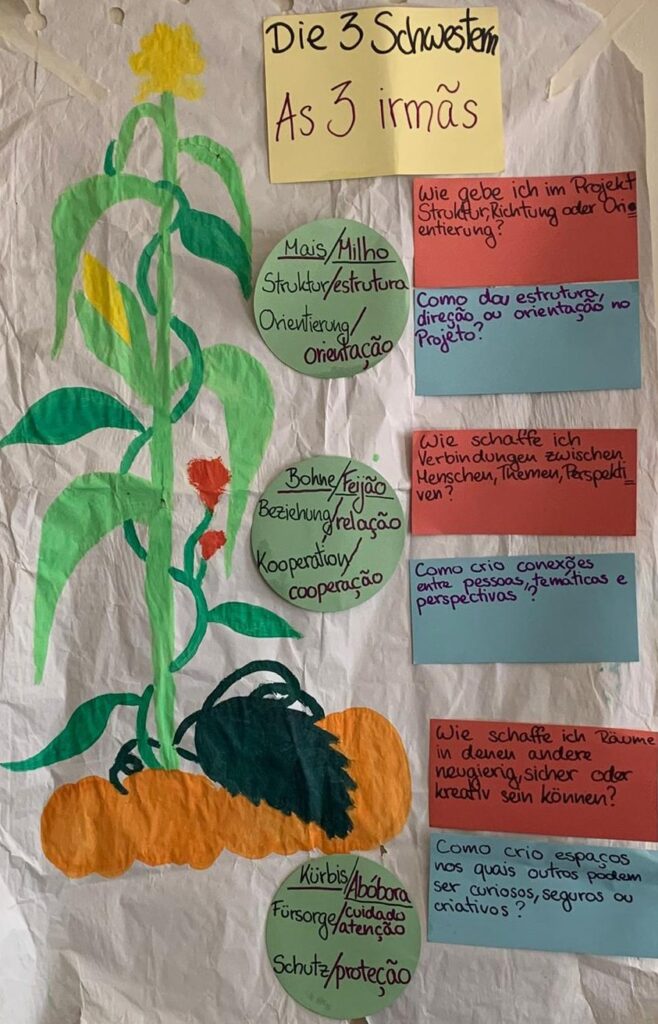 Die 3 Schwestern
As 3 irmãs
Mais/Milho
Struktur/estrutura
Orientierung/
orientação
Wie gebe ich im Projekt
Struktur, Richtung oder Ori=
entierung?
Como dou estrutura,
direção ou orientação no
Projeto?
Bohne/Feijão
Beziehung/relação
Kooperation/
cooperação
Wie schaffe ich
Verbindungen zwischen
Menschen, Themen, Perspekti=
ven?
Como crio conexões
entre pessoas, temáticas e
perspectivas?
Kürbis/Abóbora
Fürsorge/cuidado
atenção
Schutz/proteção
Wie schaffe ich Räume
in denen andere
neugierig, sicher oder
kreativ sein können?
Como crio espaços
nos quais outros podem
ser curiosos, seguros ou
criativos?